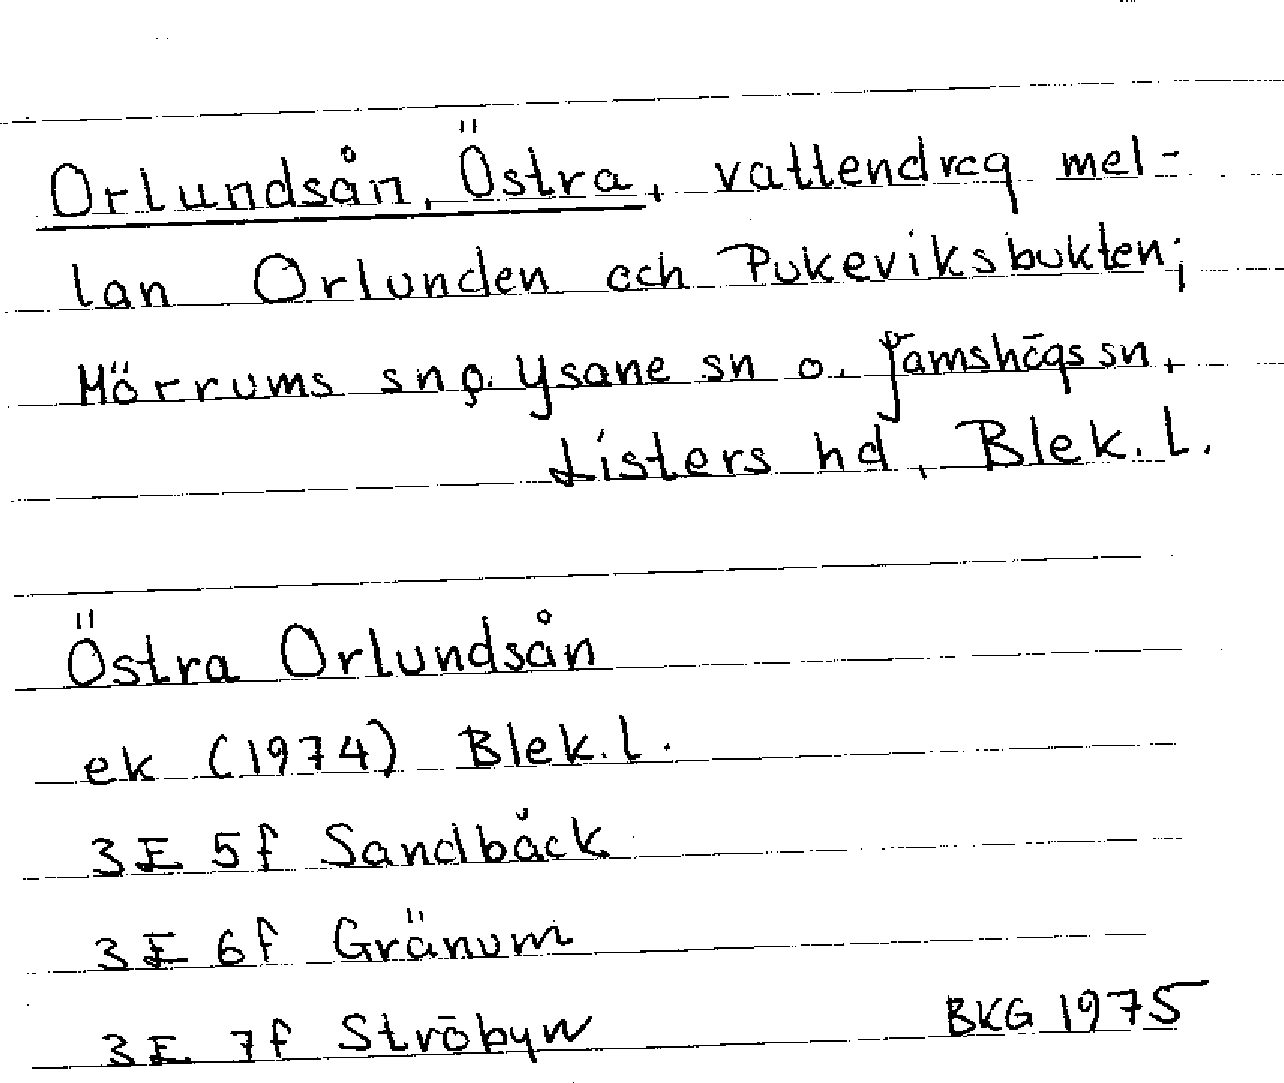 Orlundsån, Östra, vattendrag mel-
lan Orlunden och Pukeviksbukten;
Mörrums sn, Ysane sn o. Jämshögs sn,
Listers hd, Blek. l.
Östra Orlundsån
ek (1974) Blek. l.
3E 5f Sandbäck
3E 6f Gränum
3E 7f Ströbyn
BKG 1975